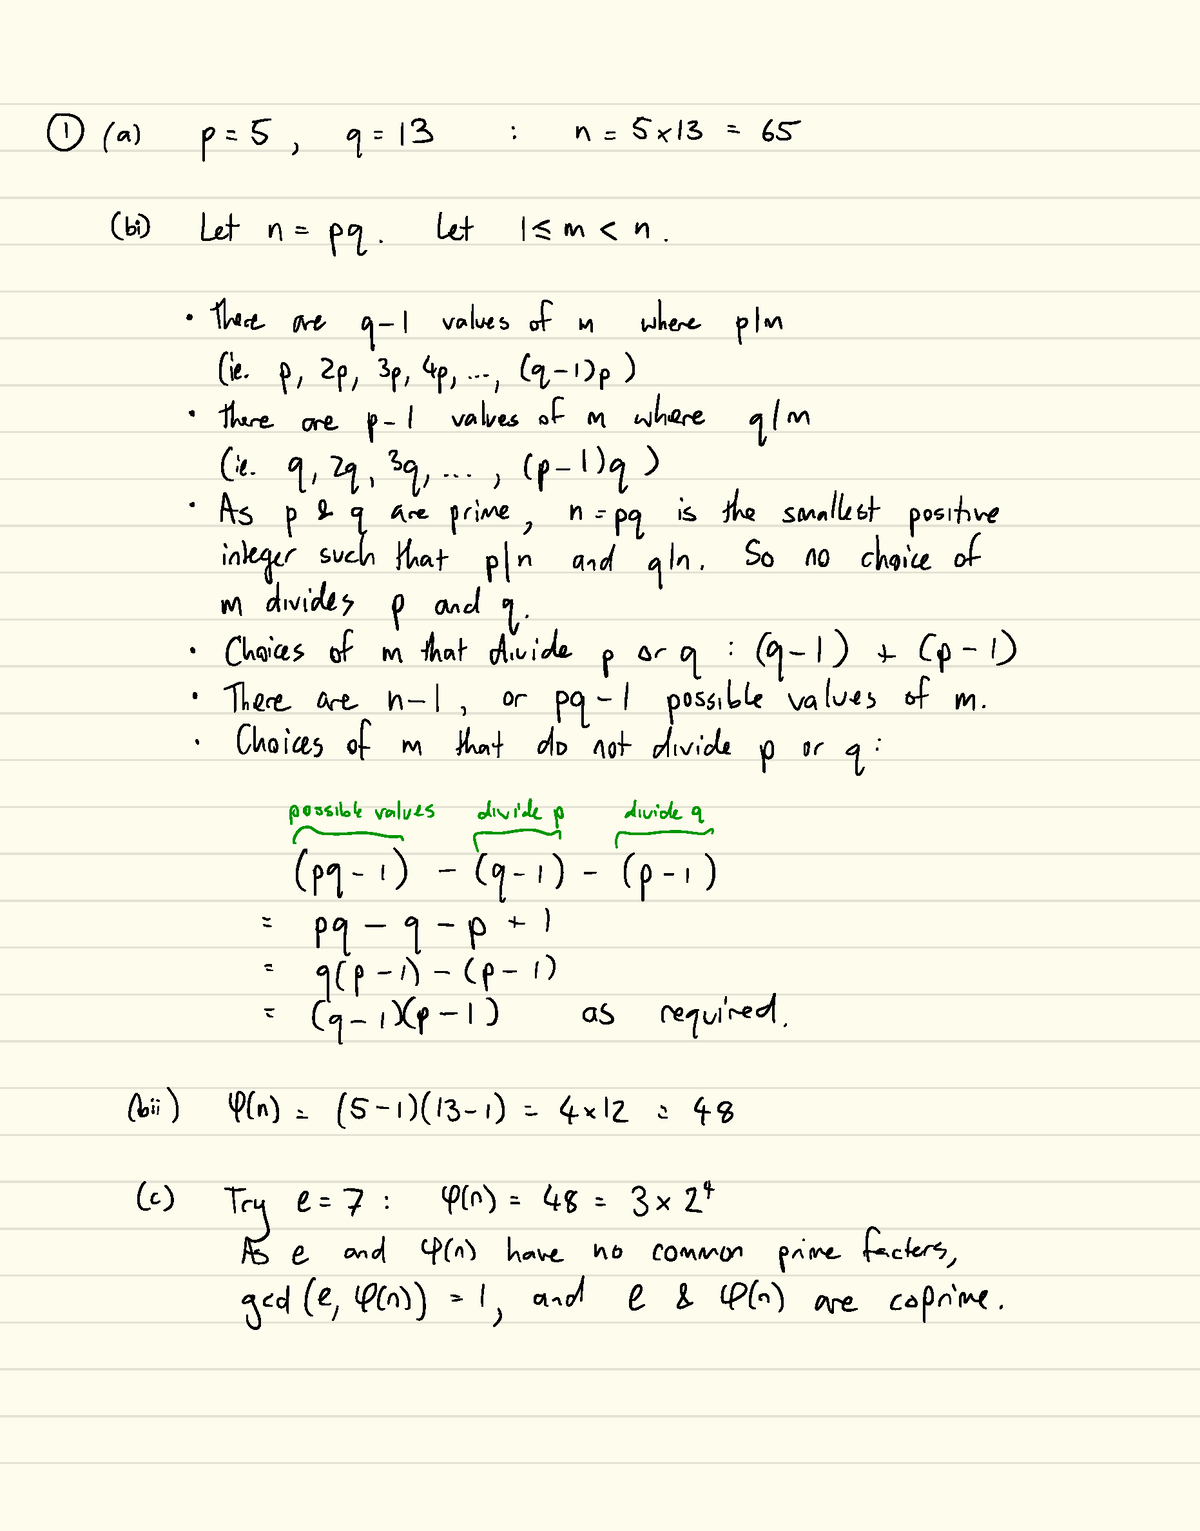 ① (a) p = 5 , q = 13 : n = 5 × 13 = 65
(bi) Let n = pq. Let 1 ≤ m < n.
• there are q-1 values of m where p|m
(ie. p, 2p, 3p, 4p, ..., (q-1)p )
• there are p-1 values of m where q|m
(ie. q, 2q, 3q, ... , (p-1)q )
• As p & q are prime, n = pq is the smallest positive
integer such that p|n and q|n. So no choice of
m divides p and q.
• Choices of m that divide p or q : (q-1) + (p-1)
• There are n-1, or pq-1 possible values of m.
• Choices of m that do not divide p or q:
possible values divide p divide q
(pq-1) - (q-1) - (p-1)
= pq - q - p + 1
= q(p-1) - (p-1)
= (q-1)(p-1) as required.
(bii) φ(n) = (5-1)(13-1) = 4×12 = 48
(c) Try e = 7 : φ(n) = 48 = 3 × 2⁴
As e and φ(n) have no common prime facters,
gcd (e, φ(n)) = 1, and e & φ(n) are coprime.